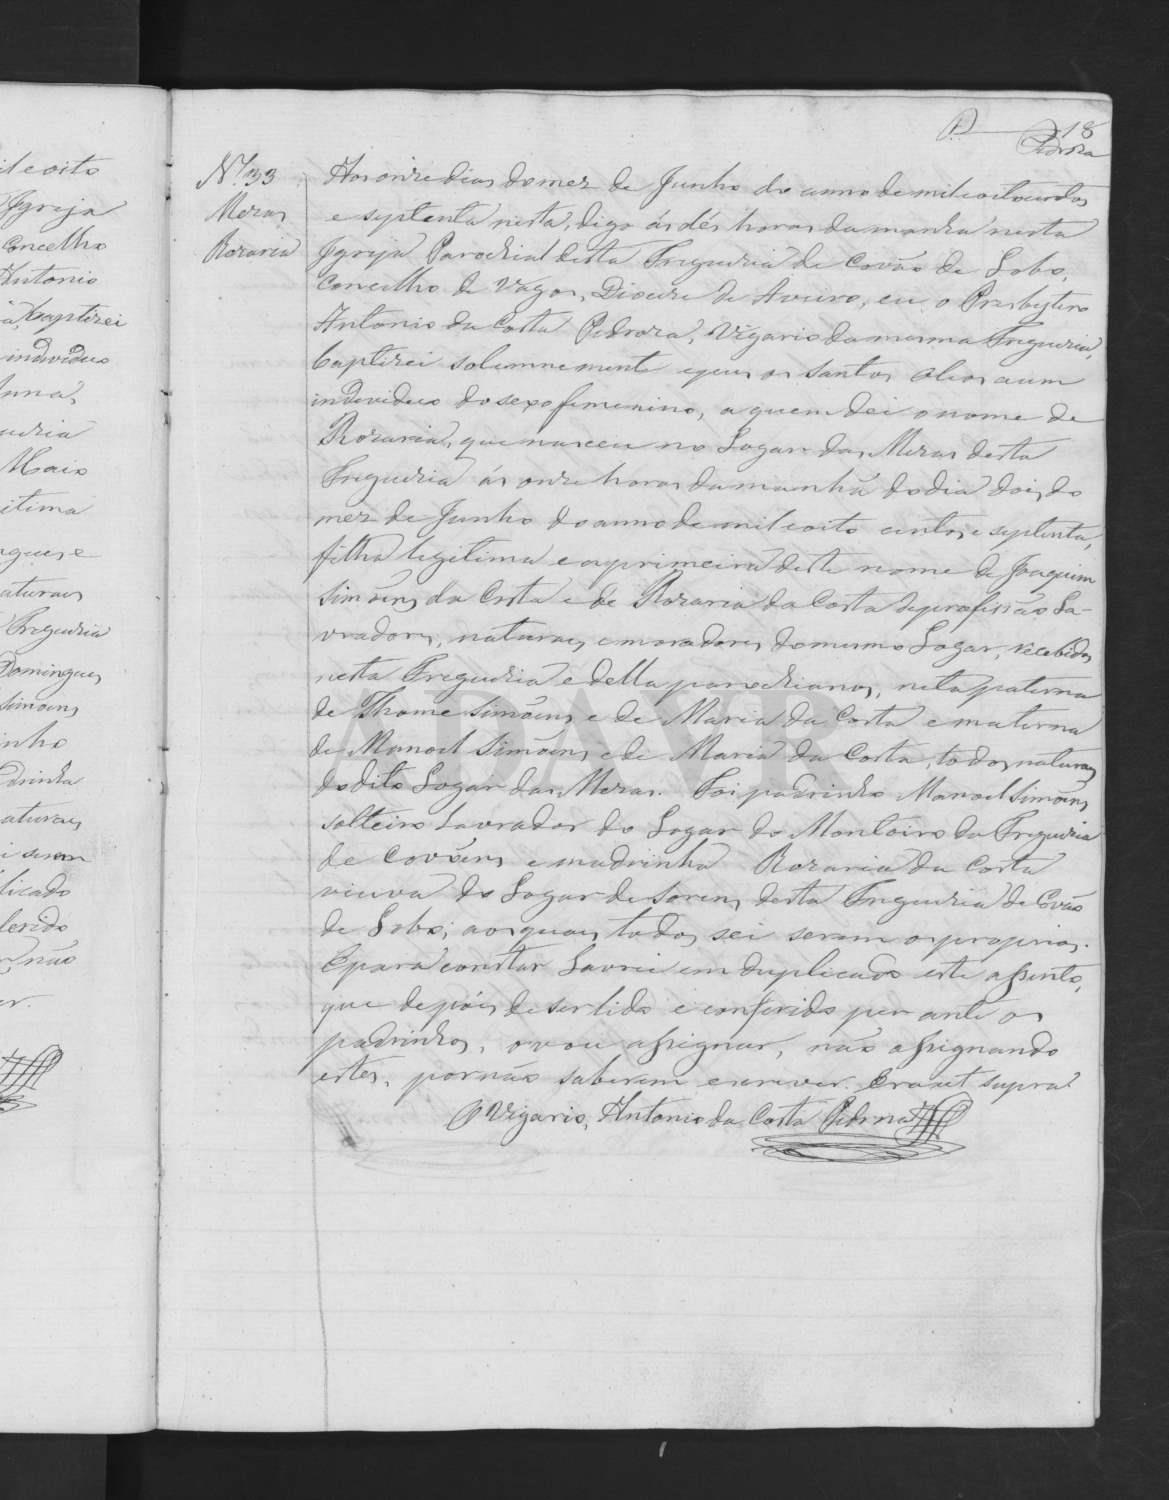 18
Pedroza
il e oito
Igreja
Concelho
Antonio
baptizei
individuo
Anna,
Maio
itima
gues e
aturaes
Freguezia
Domingues
Simoens
inho
drinha
aturaes
i serem
licado
ferido
não
er.
Nº 33
Mezas
Rozaria
Aos onze dias do mez de Junho do anno de mil oitocentos
e septenta nesta, digo ás dés horas da manhã nesta
Igreja Parochial desta Freguezia de Covão de Lobo,
Concelho de Vagos, Diocese de Aveiro, eu o Presbytero
Antonio da Costa Pedroza, Vigario da mesma Freguezia,
baptizei solemnemente e puz os santos oleos a um
individuo do sexo femenino, a quem dei o nome de
Rozaria, que nasceu no Logar das Mezas desta
Freguezia ás onze horas da manhã do dia dois do
mez de Junho do anno de mil oito centos e septenta,
filha legitima e a primeira deste nome de Joaquim
Simoens da Costa e de Rozaria da Costa de profissão La-
vradores, naturaes e moradores do mesmo Logar, recebidos
nesta Freguezia e della parochianos, neta paterna
de Thome Simoens e de Maria da Costa e materna
de Manoel Simoens e de Maria da Costa, todos naturaes
do dito Logar das Mezas. Foi padrinho Manoel Simoens
solteiro Lavrador do Logar do Montoiro da Freguezia
de Covoens e madrinha Rozaria da Costa
viuva do Logar de Sorens desta Freguezia de Covão
de Lobo; aos quaes todos sei serem os proprios.
E para constar Lavrei em duplicado este assento,
que depois de ser lido e conferido perante os
padrinhos, o vou assignar, não assignando
estes, por não saberem escrever. Era ut supra
O Vigario, Antonio da Costa Pedroza
ADAVR